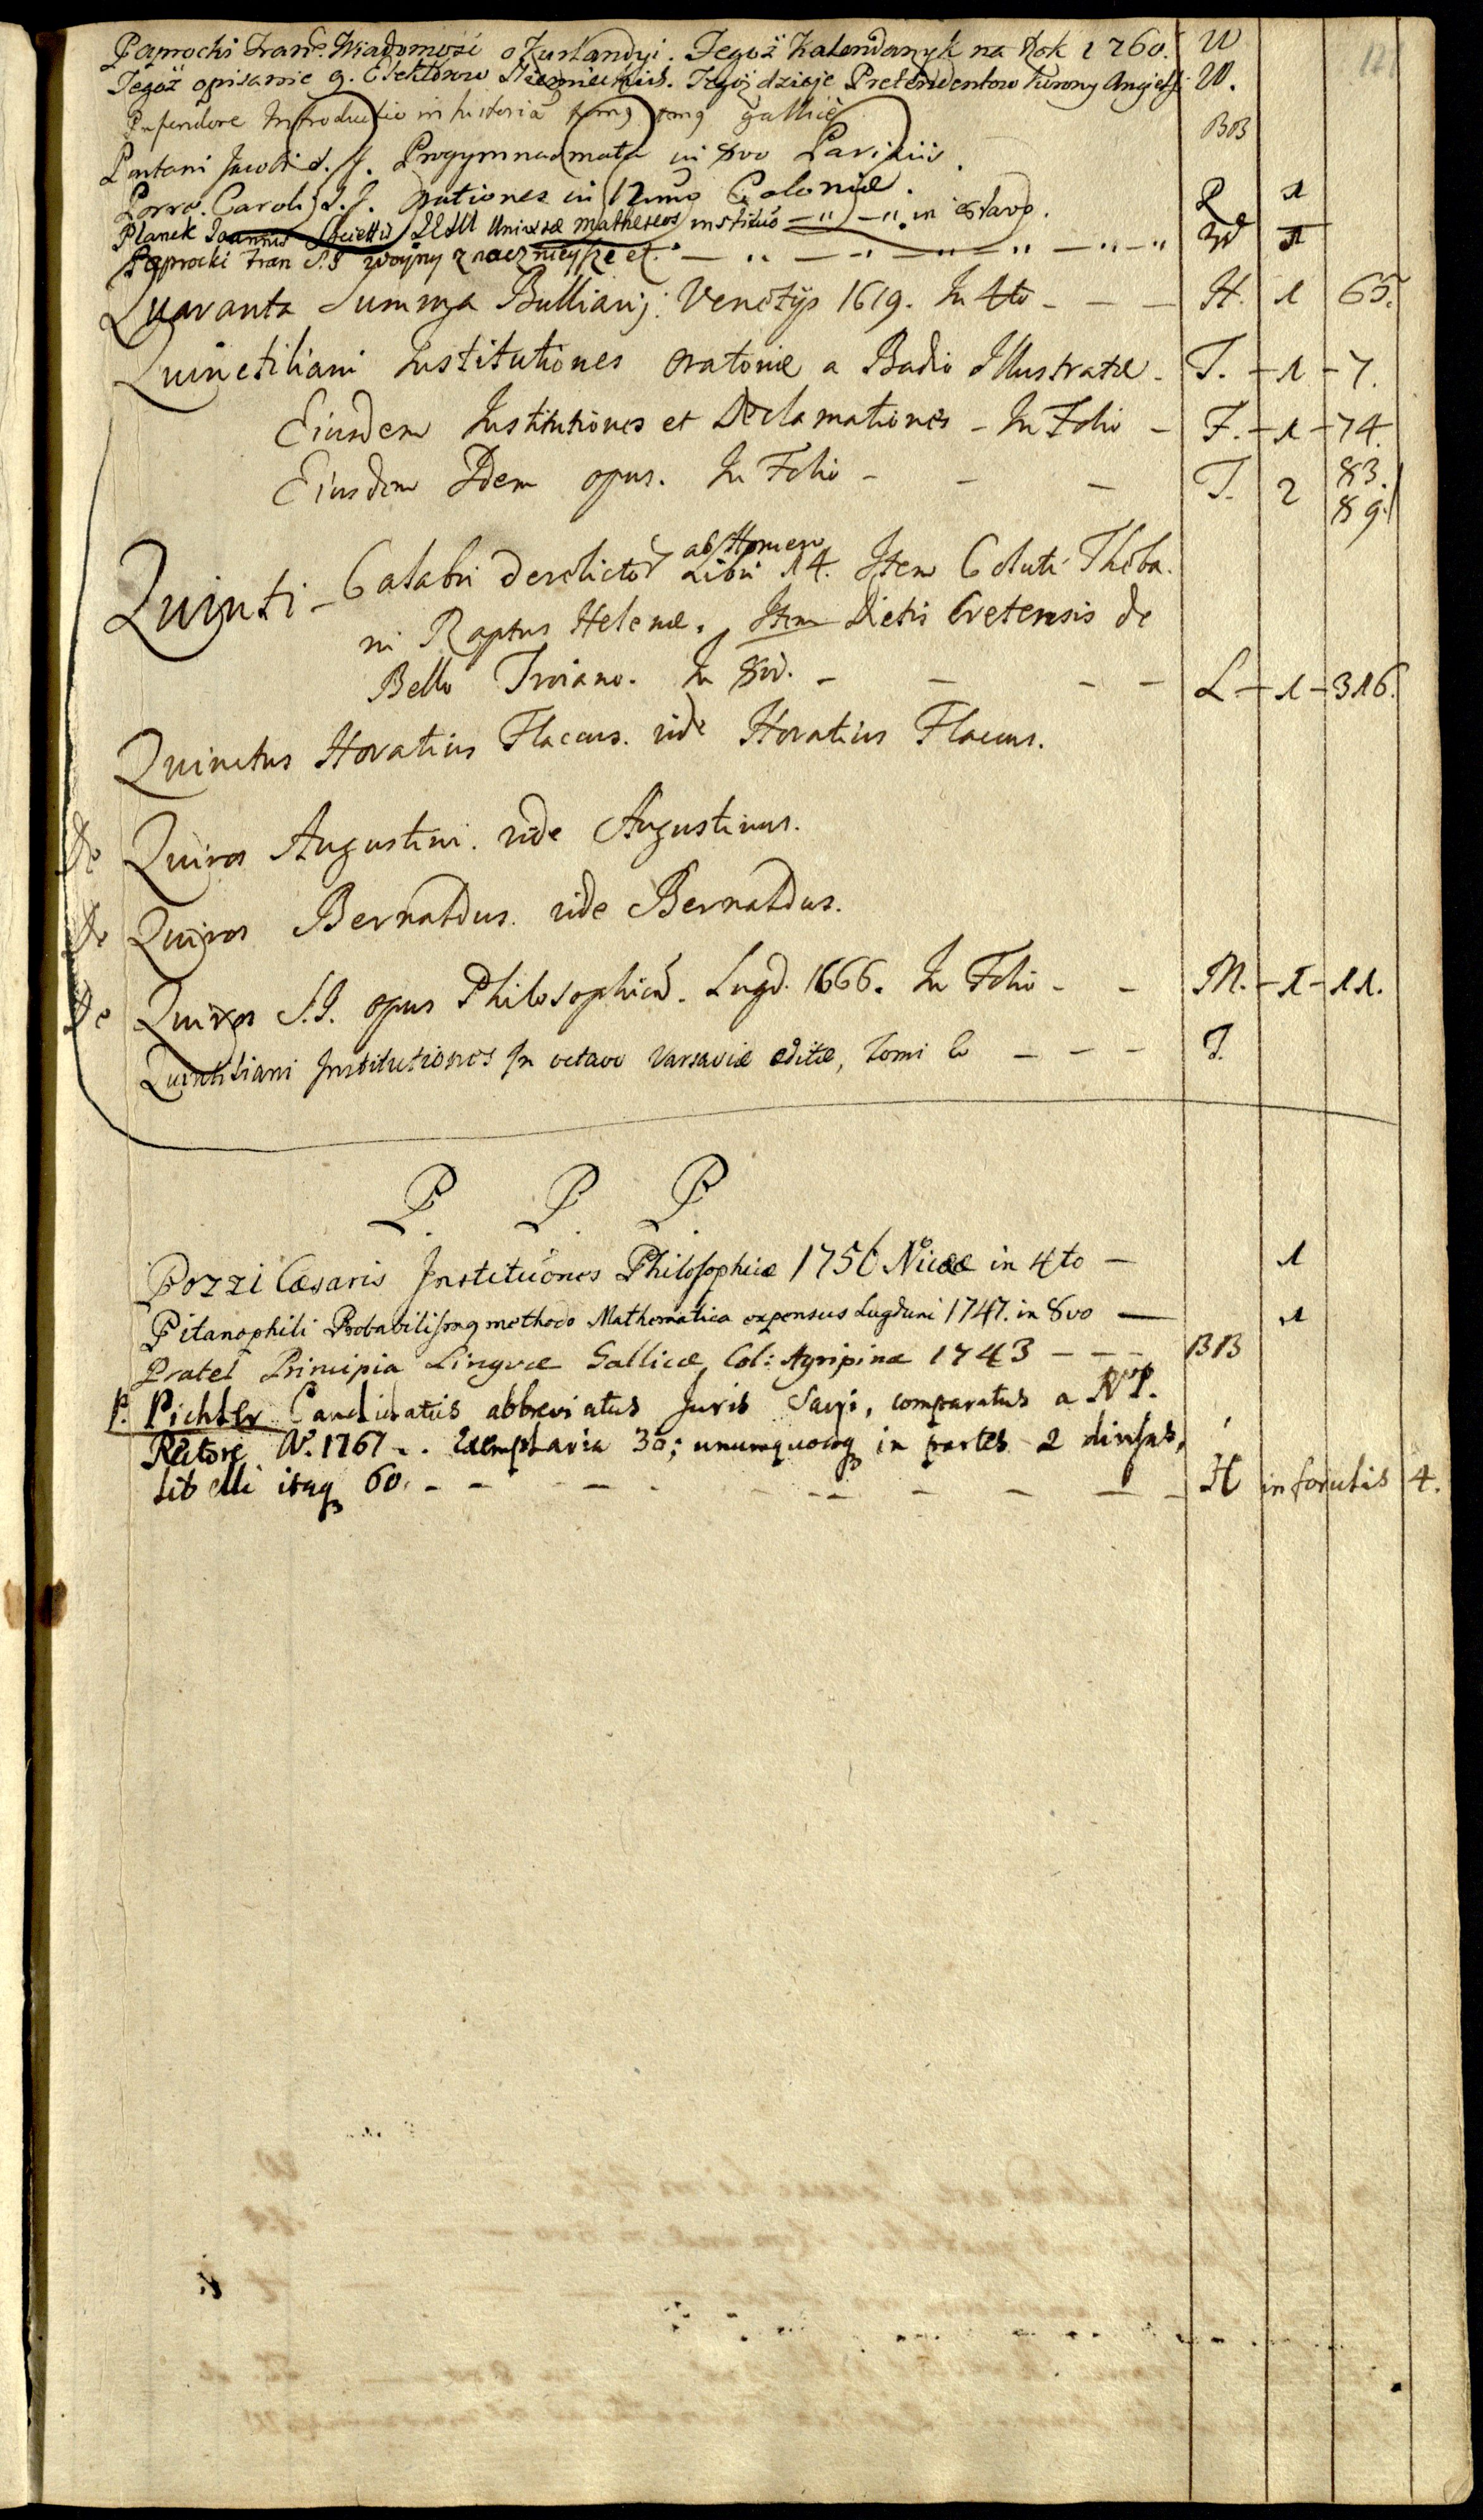 Paprocki Franc. Wiadomość o Kurlandyi. Tegoż Kalendarzyk na Rok 1760. W
Tegoż opisanie 9. Elektorow Niemieckich. Tegoż dzieje Pretendentow Korony Angiels. W.
Pufendorf Introductio in historia tomg tomg gallice BB
Pontani Jacobi S. J. Progymnasmata in 8vo Parisiis.
Porro. Caroli S. J. Orationes in 12mo Coloniæ. R 1
Planek Joannis Societis JESU Universæ matheseos instituo — " — " in octavo. W 1
Paprocki Fran S. J woyny znacznieysze et. — " — " — " — " — "
Quaranta Summa Bullarij: Venetijs 1619. In 4to - — — H. 1 65.
Quinctiliani Institutiones oratoriæ a Badio Illustratæ - T. - 1 - 7.
Eiusdem Institutiones et Declamationes - In Folio - F. - 1 - 74.
Eiusdem Idem opus. In Folio - - — T. 2 83.
89.
ab Homero
Quinti - Calabri derelictor Libri 14. Item Coluti Theba.
ni Raptus Helenæ. Item Dictis Cretensis de
Bello Troiano. In 8vo. - — - — L - 1 - 316.
Quinctus Horatius Flaccus. vide Horatius Flaccus.
De Quiros Augustini. vide Augustinus.
De Quiros Bernaldus. vide Bernaldus.
De Quiros S. J. opus Philosophicu. Lugd. 1666. In Folio - - M. - 1 - 11.
Quintiliani Institutiones In octavo Varsaviæ editæ, Tomi — — - T.
P. P. P.
Pozzi Cæsaris Institutiones Philosophicæ 1756 Niceæ in 4to — 1
Pitanophili Probabilismg methodo Mathematica expensus Lugduni 1747. in 8vo — 1
Pratel Principia Linguæ Gallicæ, Col: Agripinæ 1743 — — - BB
P. Pichler Candidatus abbreviatus Juris Sacri, comparatus a R. P.
Rectore Ao. 1767 - . Exemplaria 30; unumquodq in partes 2 divisas,
libelli itaq 60. - — — - - — — — — H in forulis 4.